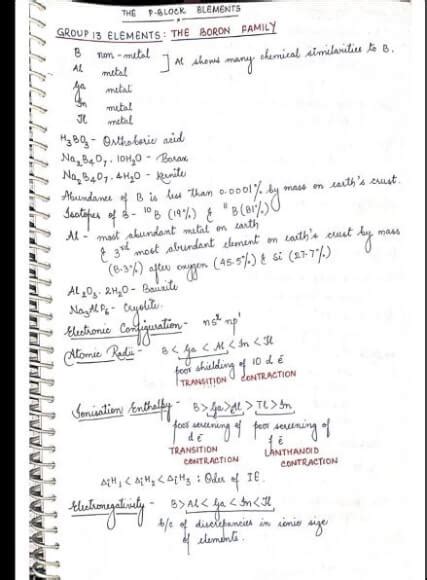 THE P-BLOCK ELEMENTS
GROUP 13 ELEMENTS: THE BORON FAMILY
B non-metal
Al metal ] Al shows many chemical similarities to B.
Ga metal
In metal
Tl metal
H₃BO₃ - Orthoboric acid
Na₂B₄O₇. 10H₂O - Borax
Na₂B₄O₇. 4H₂O - Kernite
Abundance of B is less than 0.0001% by mass on earth's crust.
Isotopes of B - ¹⁰B (19%) & ¹¹B (81%)
Al - most abundant metal on earth
& 3rd most abundant element on earth's crust by mass
(8.3%) after oxygen (45.5%) & Si (27.7%)
Al₂O₃. 2H₂O - Bauxite
Na₃AlF₆ - Cryolite.
Electronic Configuration - ns² np¹
Atomic Radii - B < Ga < Al < In < Tl
poor shielding of 10 d ē
TRANSITION CONTRACTION
Ionisation Enthalpy - B > Ga > Al > Tl > In
poor screening of poor screening of
d ē f ē
TRANSITION LANTHANOID
CONTRACTION CONTRACTION
ΔᵢH₁ < ΔᵢH₂ < ΔᵢH₃ : Oder of IE.
Electronegativity - B > Al < Ga < In < Tl
b/c of discrepancies in ionic size
of elements.